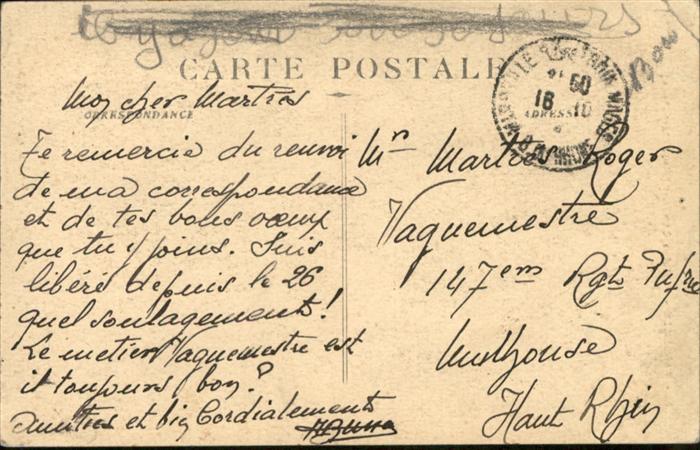 CARTE POSTALE
CORRESPONDANCE
ADRESSE
Mon cher Martres
Te remercie du renvoi
de ma correspondance
et de tes bons voeux
que tu y joins. Suis
libéré depuis le 26
quel soulagement!
Le metier Vaguemestre est
il toujours bon?
Amitiés et bien Cordialement
Mr Martres Roger
Vaguemestre
147em Rgt Infrie
Mulhouse
Haut Rhin
18 10